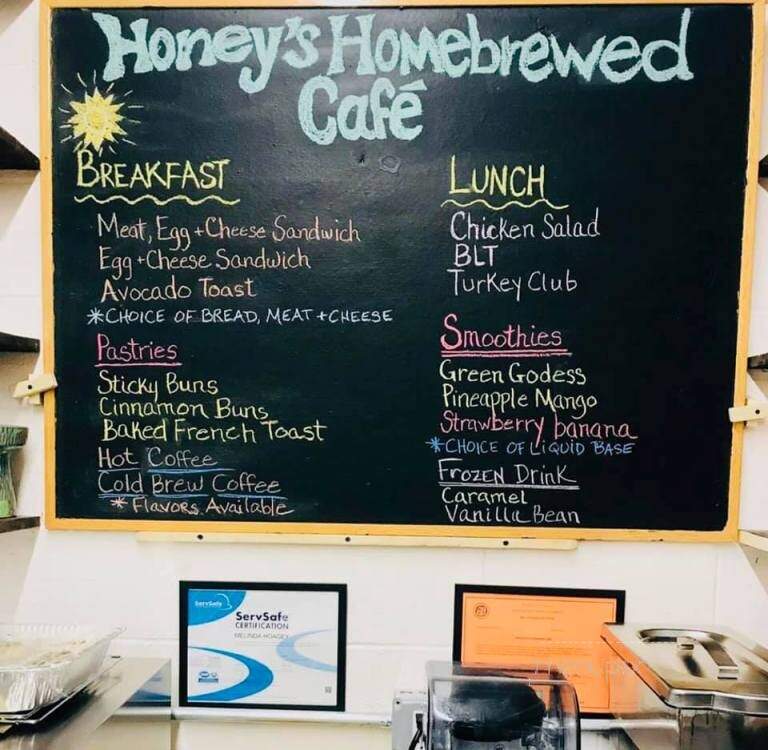 Honey's Homebrewed
Café
BREAKFAST
Meat, Egg + Cheese Sandwich
Egg + Cheese Sandwich
Avocado Toast
*CHOICE OF BREAD, MEAT + CHEESE
Pastries
Sticky Buns
Cinnamon Buns
Baked French Toast
Hot Coffee
Cold Brew Coffee
* Flavors Available
LUNCH
Chicken Salad
BLT
Turkey Club
Smoothies
Green Godess
Pineapple Mango
Strawberry banana
*CHOICE OF LIQUID BASE
FROZEN DRINK
Caramel
Vanilla Bean
ServSafe
ServSafe
CERTIFICATION